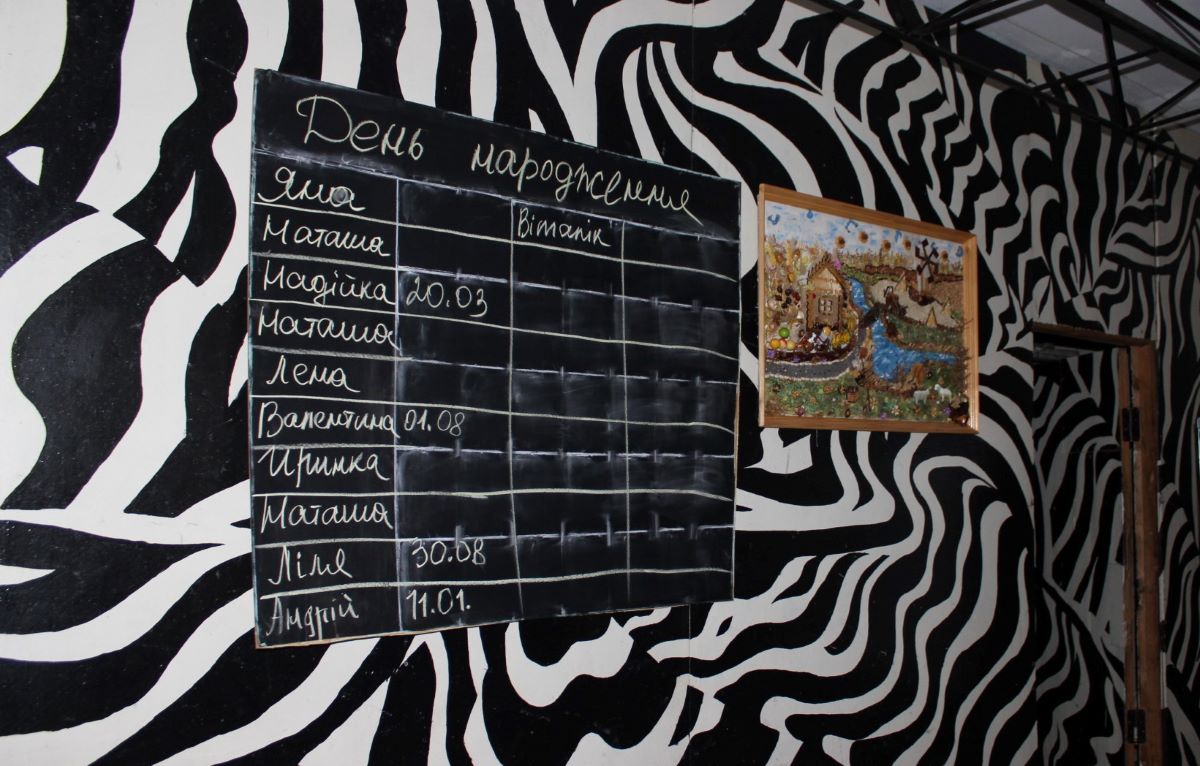 День народження
Яна
Віталік
Наташа
Надійка 20.03
Наташа
Лена
Валентина 01.08
Иринка
Наташа
Ліля 30.08
Андрій 11.01.